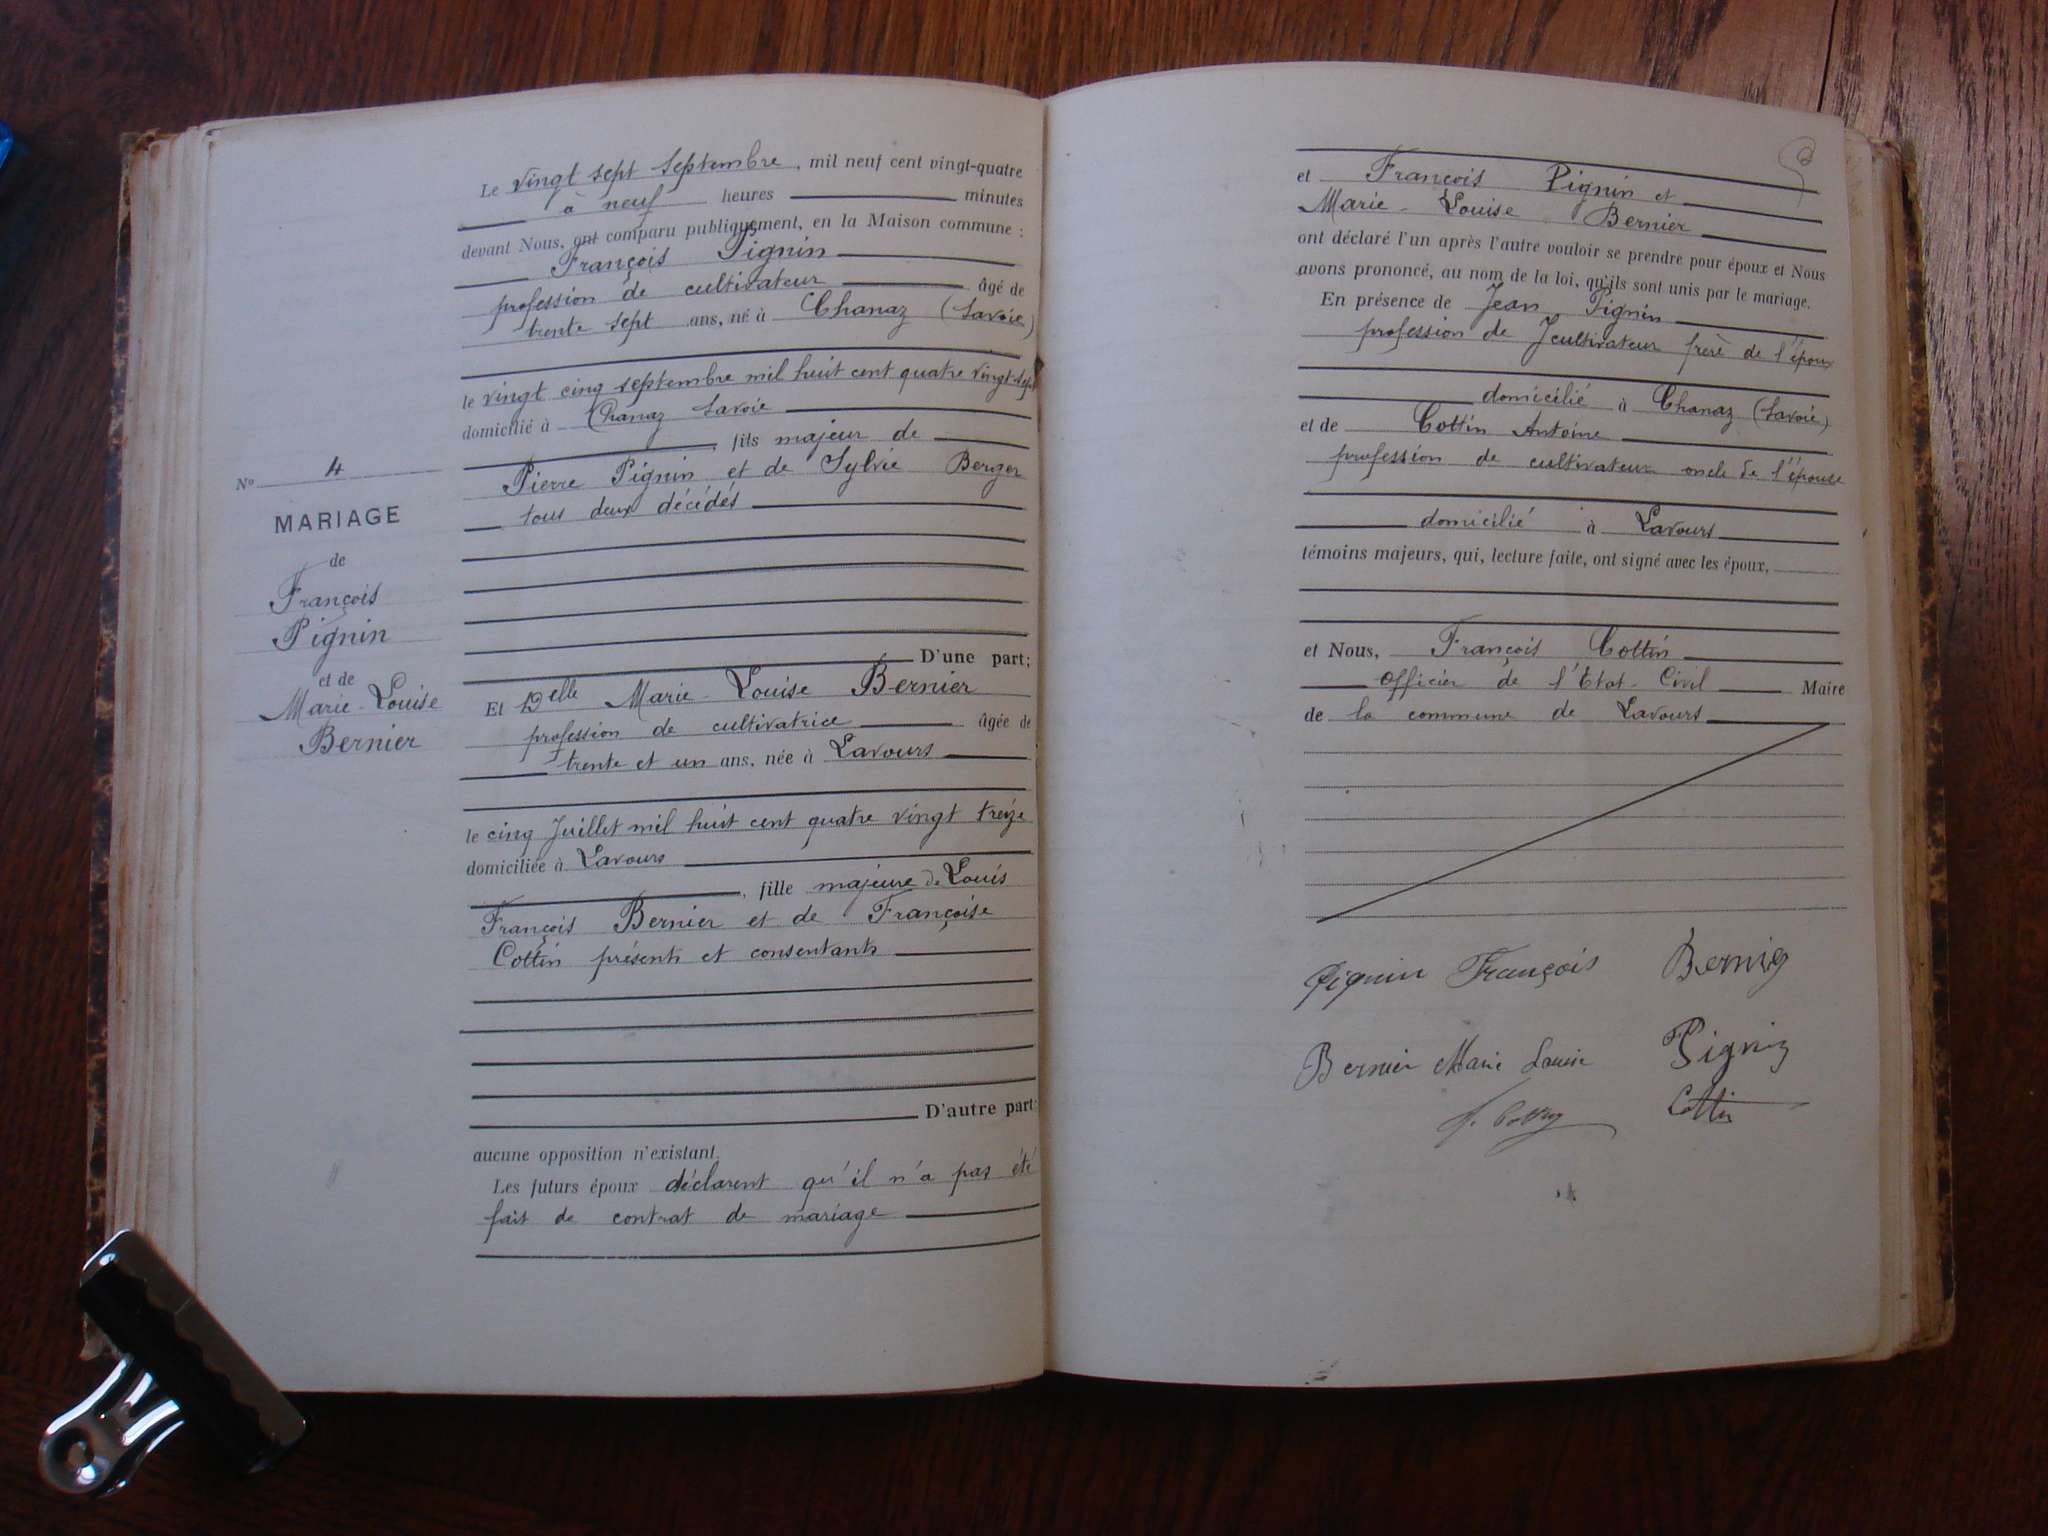 Nº 4
MARIAGE
de
François
Pignin
et de
Marie-Louise
Bernier
Le vingt sept septembre, mil neuf cent vingt-quatre
à neuf heures minutes
devant Nous, ont comparu publiquement, en la Maison commune :
François Pignin
profession de cultivateur âgé de
trente sept ans, né à Chanaz (Savoie)
le vingt cinq septembre mil huit cent quatre vingt sept
domicilié à Chanaz Savoie
, fils majeur de
Pierre Pignin et de Sylvie Berger
tous deux décédés
D'une part;
Et Delle Marie-Louise Bernier
profession de cultivatrice âgée de
trente et un ans, née à Lavours
le cinq Juillet mil huit cent quatre vingt treize
domiciliée à Lavours
, fille majeure de Louis
François Bernier et de Françoise
Cottin présents et consentants
D'autre part;
aucune opposition n'existant.
Les futurs époux déclarent qu'il n'a pas été
fait de contrat de mariage
et François Pignin et
Marie-Louise Bernier
ont déclaré l'un après l'autre vouloir se prendre pour époux et Nous
avons prononcé, au nom de la loi, qu'ils sont unis par le mariage.
En présence de Jean Pignin
profession de cultivateur frère de l'époux
domicilié à Chanaz (Savoie)
et de Cottin Antoine
profession de cultivateur oncle de l'épouse
domicilié à Lavours
témoins majeurs, qui, lecture faite, ont signé avec les époux,
et Nous, François Cottin
Officier de l'Etat-Civil Maire
de la commune de Lavours
Pignin François Bernier
Bernier Marie Louise Pignin
f. Cottin Cottin